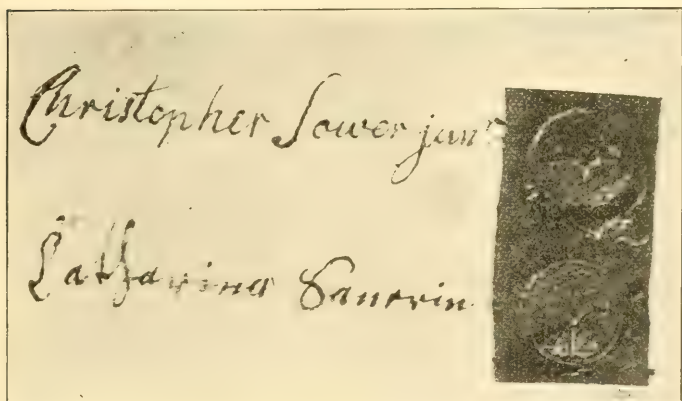 Christopher Sower junr
Catharina Saurin